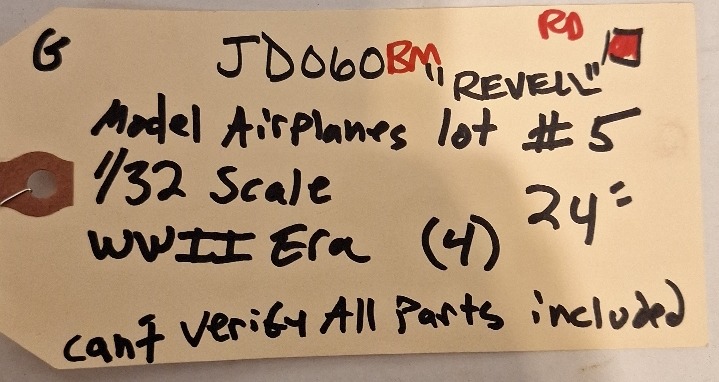 G JD060BM RD
"REVELL"
Model Airplanes lot #5
1/32 Scale
WWII Era (4) 24=
can't verify All Parts included